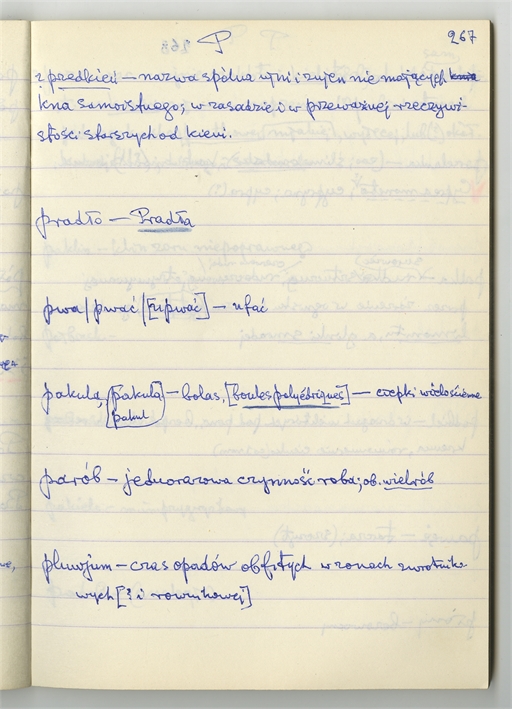 P
267
? przedkień — nazwa spólna ujni i zujen nie mających
kna samoistnego; w zasadzie i w przeważnej rzeczywi-
stości starszych od kieni.
pradło — Pradła
pwa / pwać / [upwać] — ufać
pakulą, [pakulą] — bolas, [boules polyédriques] — czepki
pakul
parób — jednorazowa czynność roba; ob. wielrób
pluwjum — czas opadów obfitych w zonach zwrotniko-
wych [? i równikowej]